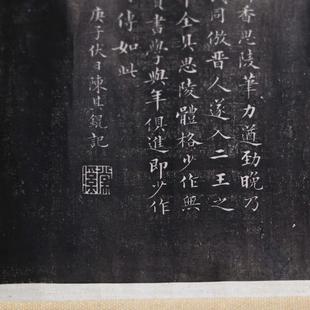 香思陵筆力遒勁晚乃
同倣晉人遂入二王之
全具思陵體格少作與
書學與年俱進即少作
如此
庚子伏日陳其錕記